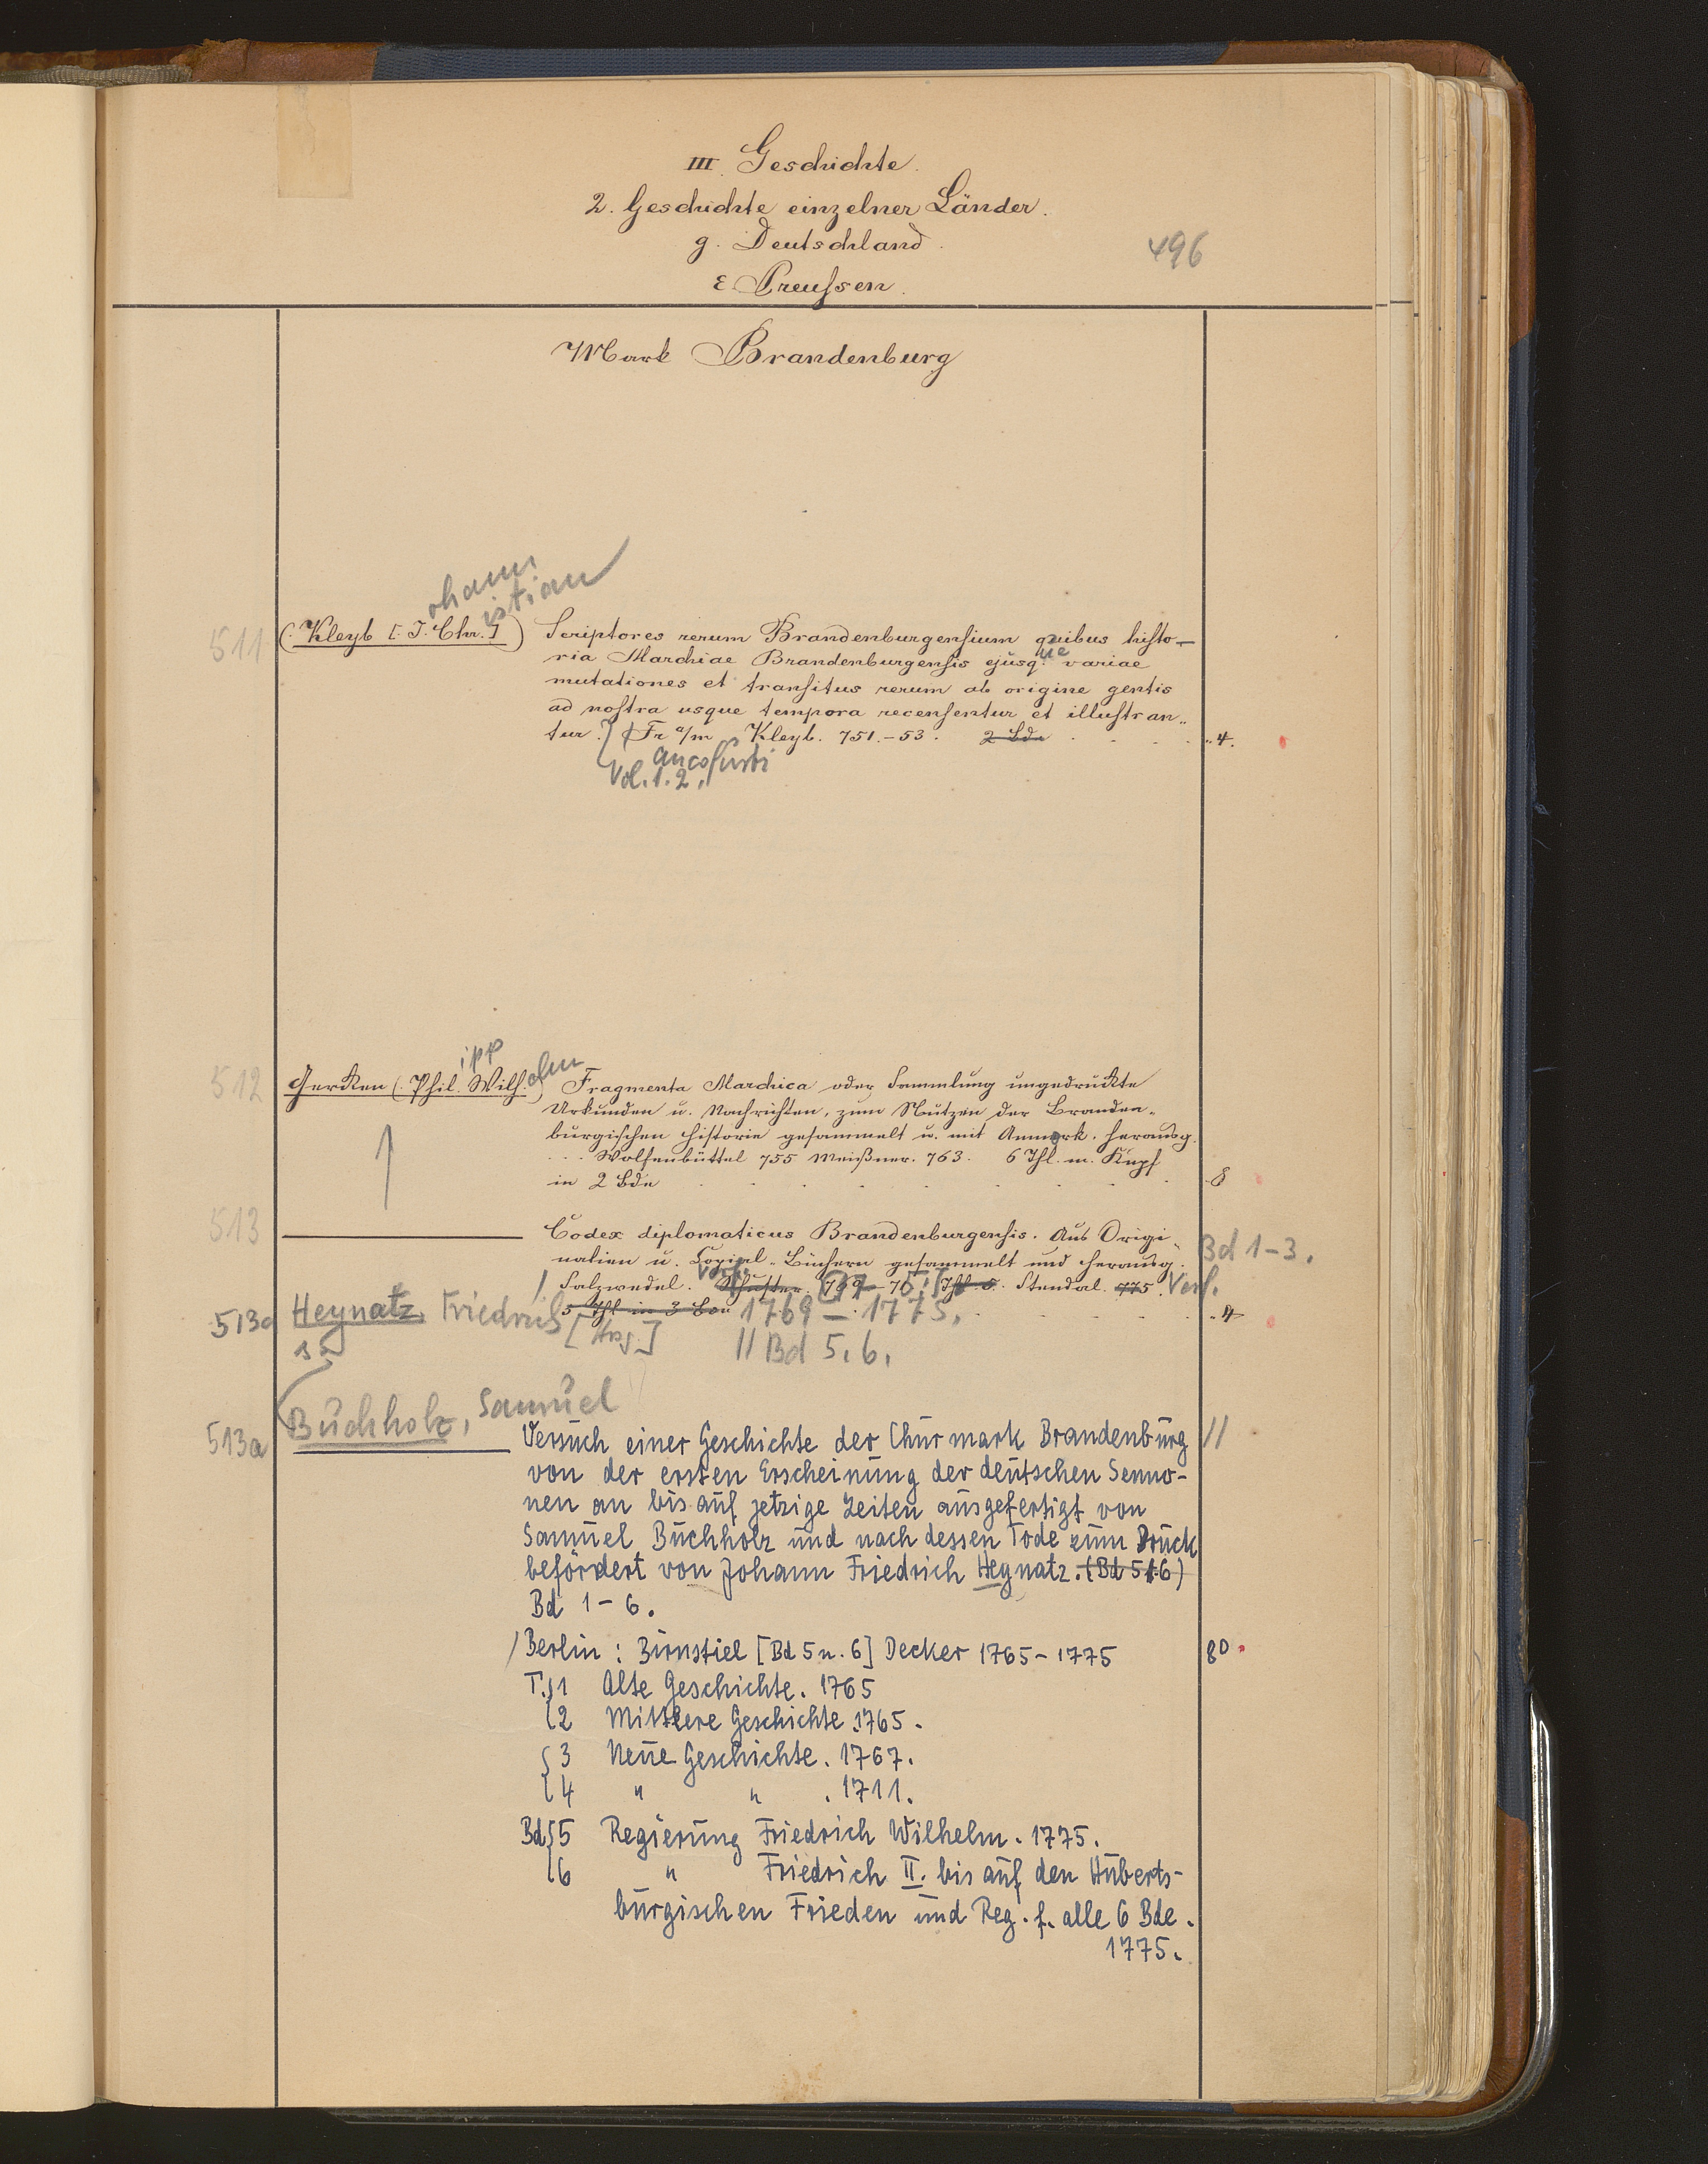 III. Geschichte.
2. Geschichte einzelner Länder.
g. Deutschland.
496
ε Preuſsen.
Mark Brandenburg
ohann
istian
511 (Kleyb [J. Chr.]) Scriptores rerum Brandenburgenſium quibus hiſto-
ria Marchiae Brandenburgenſis ejusq. ue variae
mutationes et tranſitus rerum ab origine gentis
ad noſtra usque tempora recenſentur et illuſtran-
tur. Fr a/m Kleyb. 751.-53. 2 Bde 4.
ancofurti
Vol. 1. 2.
ipp
elm
512 Gerken (Phil. Wilh.) Fragmenta Marchica oder Sammlung ungedruckte
Urkunden u. Nachrichten, zum Nutzen der Branden-
burgischen Historie gesammelt u. mit Anmerk. herausg.
Wolfenbüttel 755 Meißner. 763. 6 Thl. m. Kupf
in 2 Bde 8
513 Codex diplomaticus Brandenburgenſis. Aus Origi-
nalien u. Copial-Büchern gesammelt und herausg. Bd 1-3.
Salzwedel. Schuster. 769 Stendal. 775. Verf.
5 Thl in 3 Bde 1769-1775. 4
513a Heynatz, Friedrich [Hrsg.]
II Bd 5. 6.
Buchholz, Samuel
513a Versuch einer Geschichte der Churmark Brandenburg II
von der ersten Erscheinung der deutschen Senno-
nen an bis auf jetzige Zeiten ausgefertigt von
Samuel Buchholz und nach dessen Tode zum Druck
befördert von Johann Friedrich Heynatz. (Bd 5 6)
Bd 1-6.
Berlin: Birnstiel [Bd 5 u. 6] Decker 1765-1775 80
T. 1 Alte Geschichte. 1765
2 Mittlere Geschichte. 1765.
3 Neue Geschichte. 1767.
4 " " . 1711.
Bd 5 Regierung Friedrich Wilhelm. 1775.
6 " Friedrich II. bis auf den Huberts-
burgischen Frieden und Reg. f. alle 6 Bde.
1775.